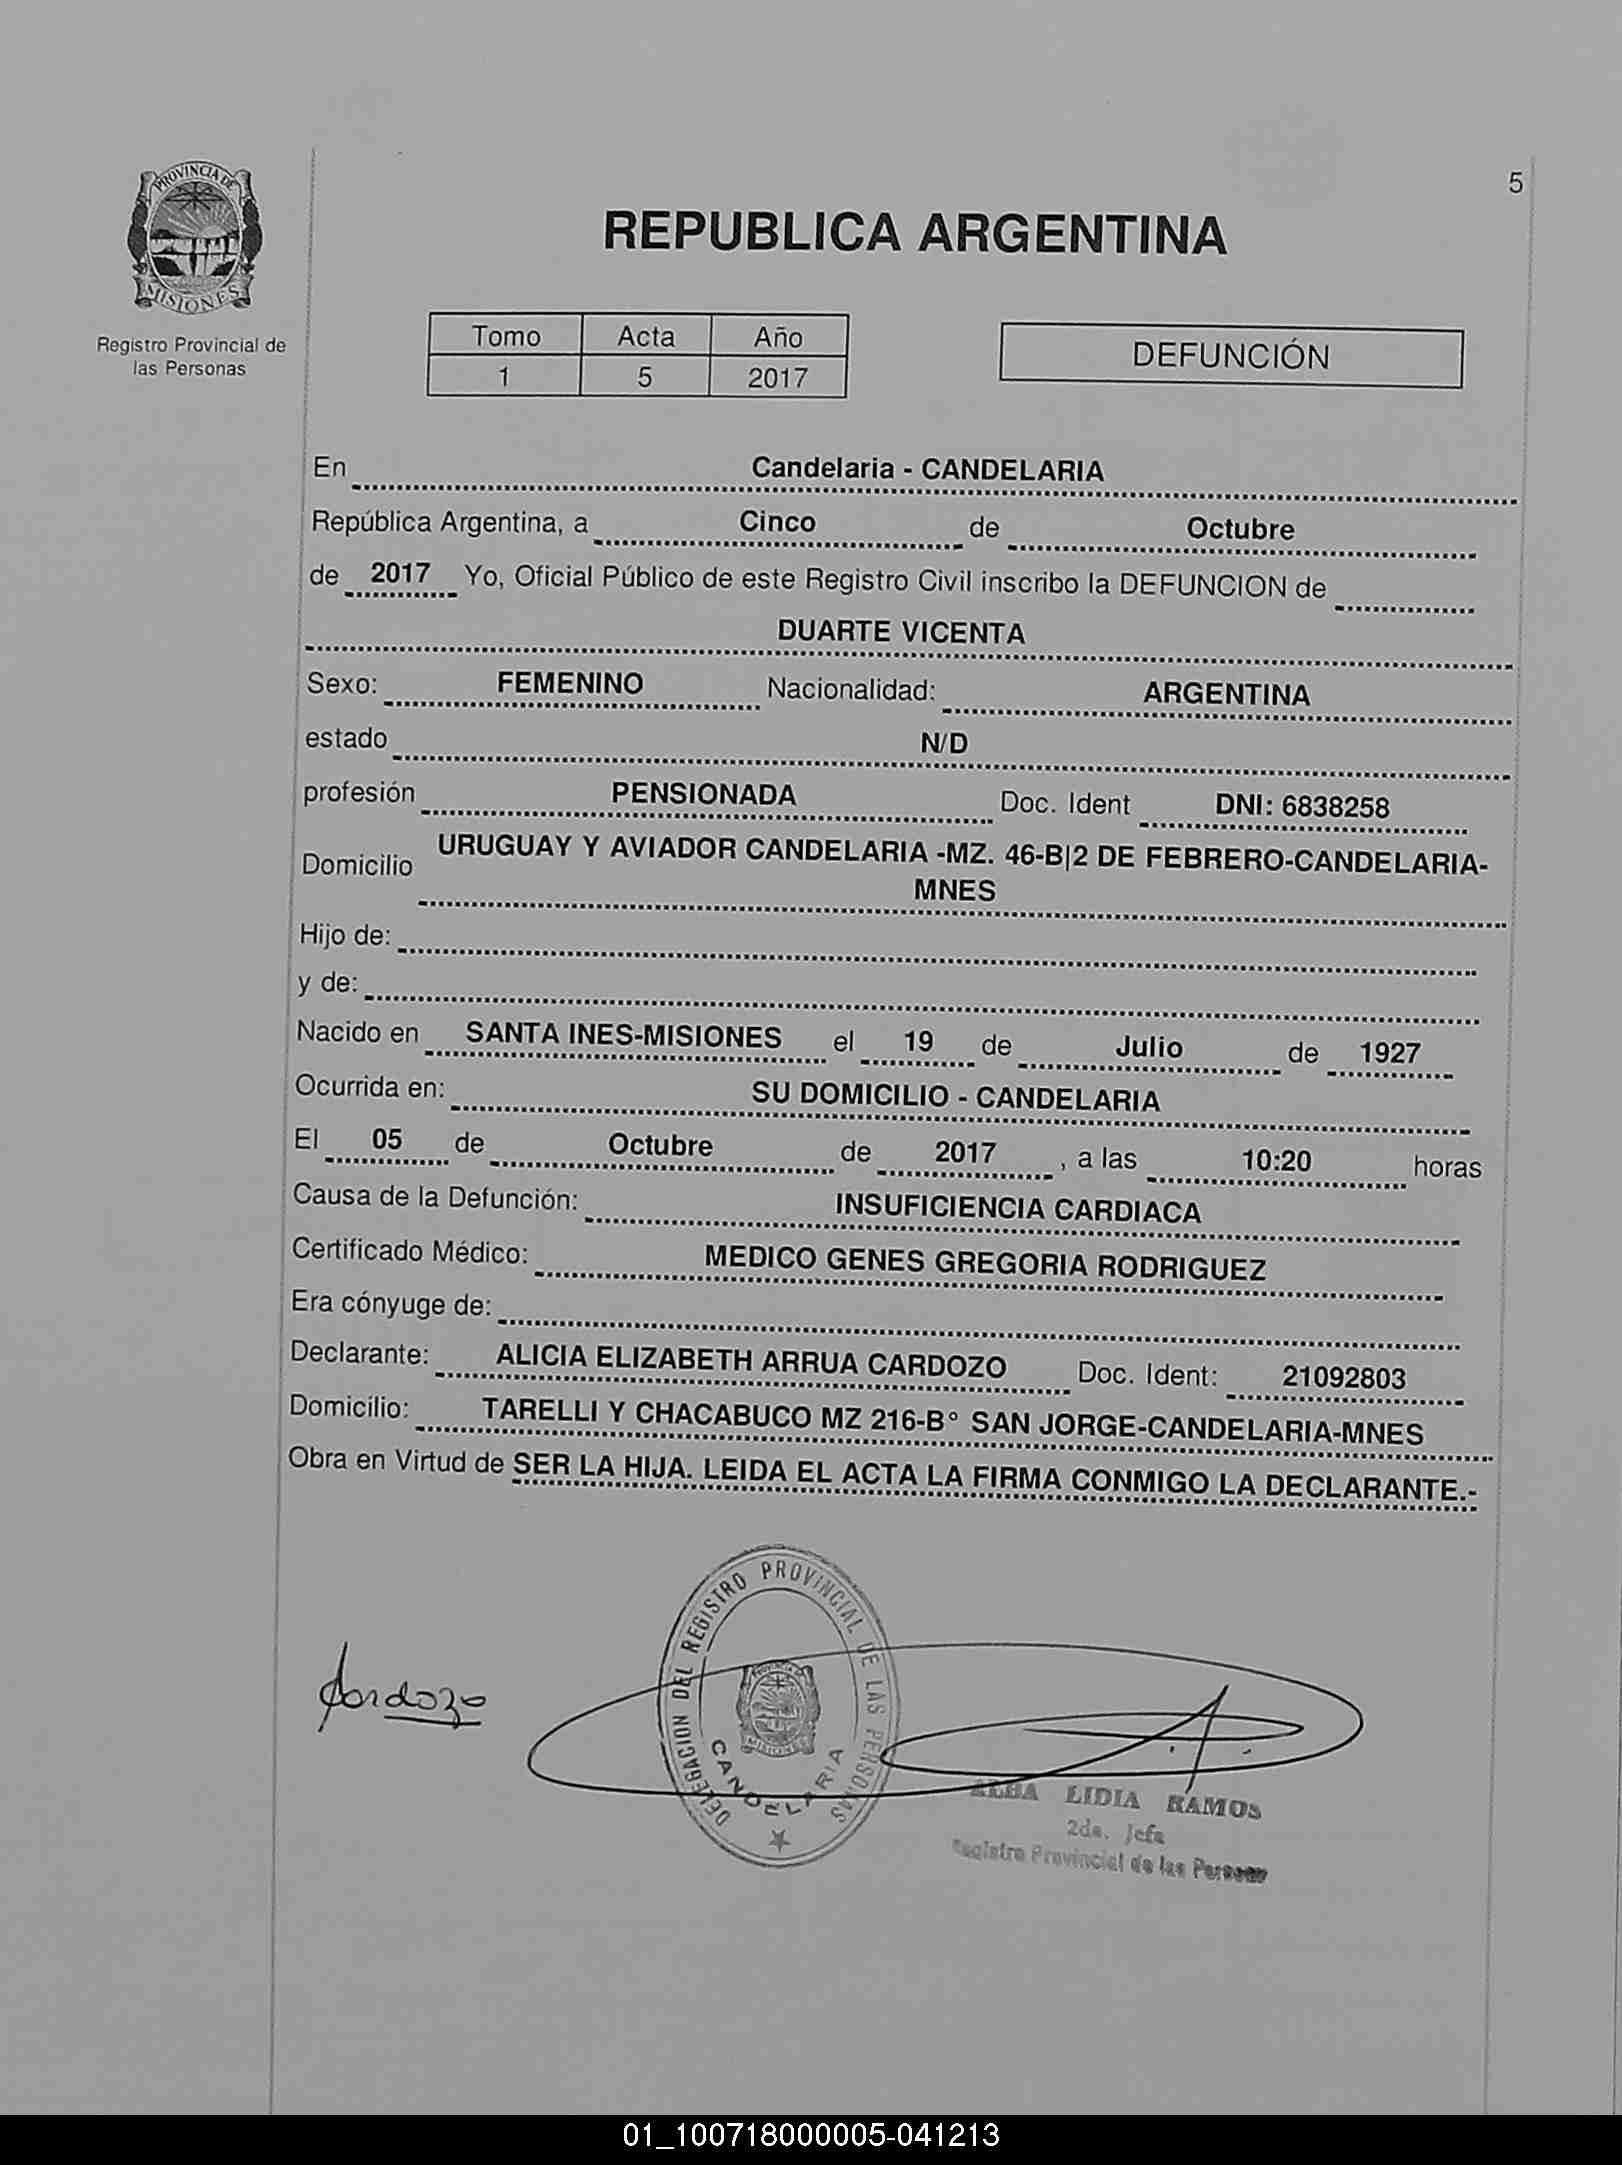 5
PROVINCIA DE
MISIONES
Registro Provincial de
las Personas
REPUBLICA ARGENTINA
Tomo Acta Año
1 5 2017
DEFUNCIÓN
En Candelaria - CANDELARIA
República Argentina, a Cinco de Octubre
de 2017 Yo, Oficial Público de este Registro Civil inscribo la DEFUNCION de
DUARTE VICENTA
Sexo: FEMENINO Nacionalidad: ARGENTINA
estado N/D
profesión PENSIONADA Doc. Ident DNI: 6838258
Domicilio URUGUAY Y AVIADOR CANDELARIA -MZ. 46-B|2 DE FEBRERO-CANDELARIA-
MNES
Hijo de:
y de:
Nacido en SANTA INES-MISIONES el 19 de Julio de 1927
Ocurrida en: SU DOMICILIO - CANDELARIA
El 05 de Octubre de 2017 , a las 10:20 horas
Causa de la Defunción: INSUFICIENCIA CARDIACA
Certificado Médico: MEDICO GENES GREGORIA RODRIGUEZ
Era cónyuge de:
Declarante: ALICIA ELIZABETH ARRUA CARDOZO Doc. Ident: 21092803
Domicilio: TARELLI Y CHACABUCO MZ 216-B° SAN JORGE-CANDELARIA-MNES
Obra en Virtud de SER LA HIJA. LEIDA EL ACTA LA FIRMA CONMIGO LA DECLARANTE.-
DELEGACION DEL REGISTRO PROVINCIAL DE LAS PERSONAS
PROVINCIA DE
MISIONES
CANDELARIA
Cardozo
ALBA LIDIA RAMOS
2da. Jefa
Registro Provincial de las Personas
01_100718000005-041213